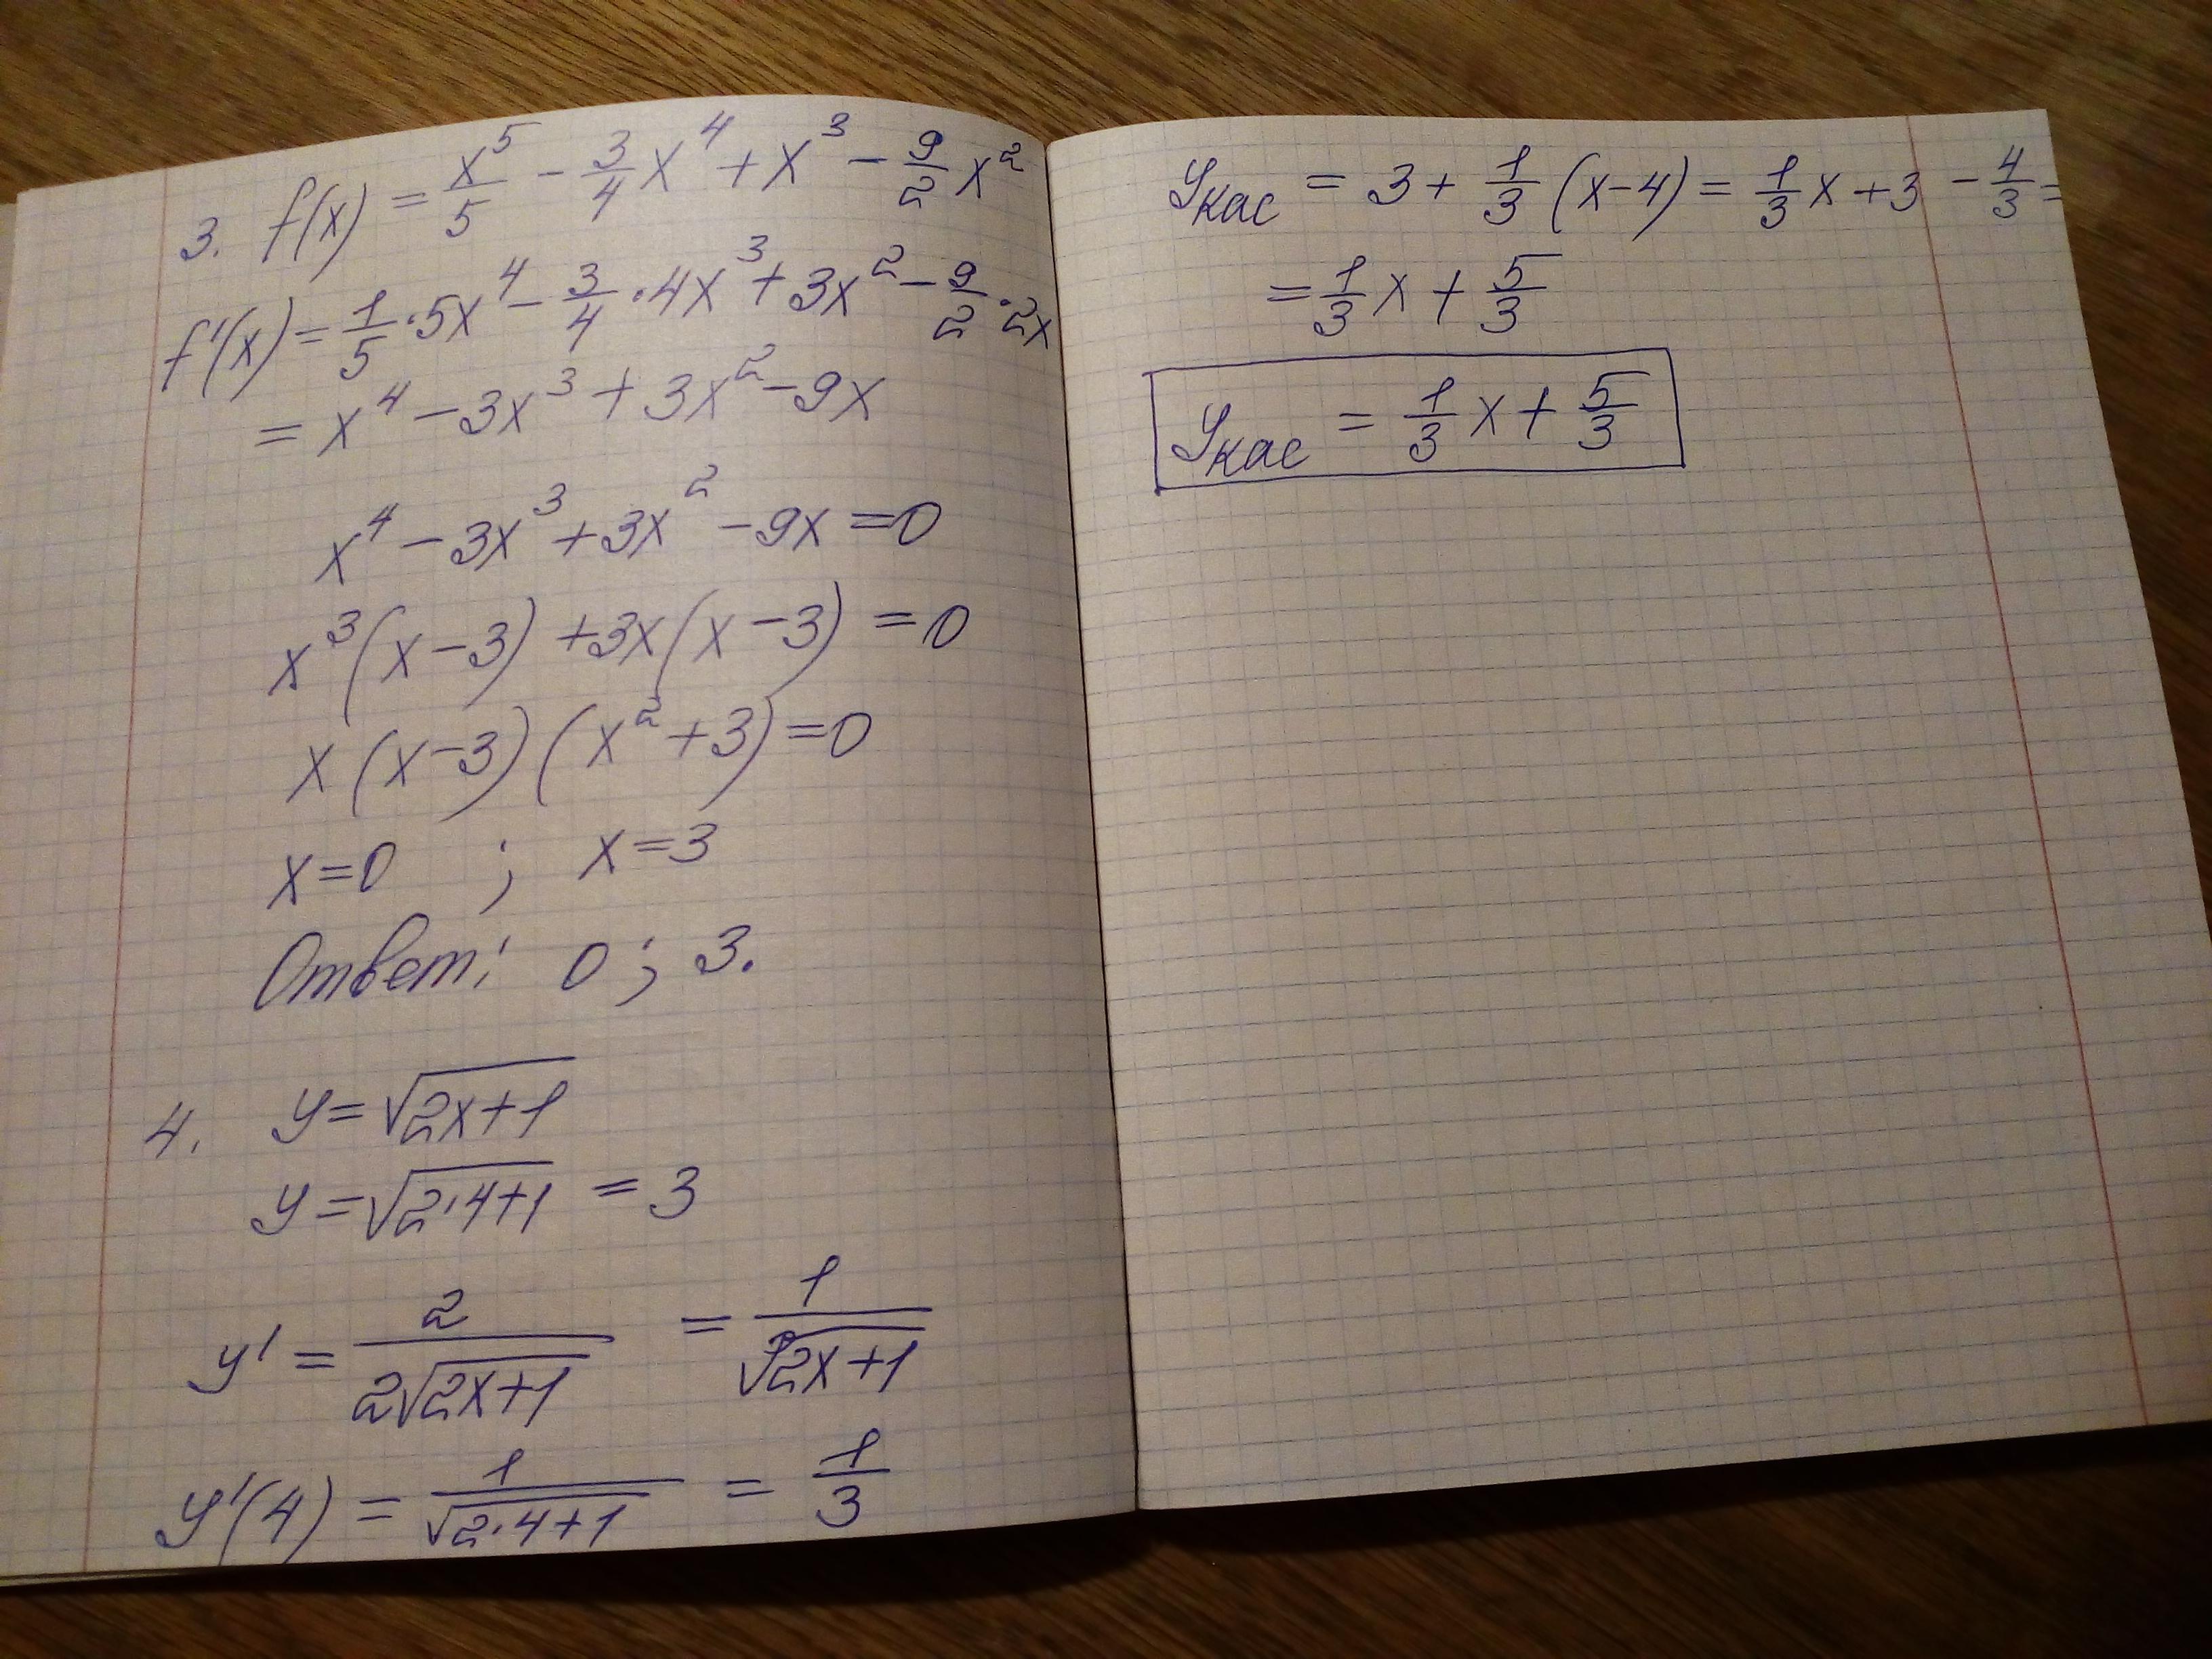 3. f(x) = x⁵/5 - 3/4 x⁴ + x³ - 9/2 x²
f'(x) = 1/5 · 5x⁴ - 3/4 · 4x³ + 3x² - 9/2 · 2x
= x⁴ - 3x³ + 3x² - 9x
x⁴ - 3x³ + 3x² - 9x = 0
x³(x-3) + 3x(x-3) = 0
x(x-3)(x²+3) = 0
x=0 ; x=3
Ответ: 0; 3.
4. y = √(2x+1)
y = √(2·4+1) = 3
y' = 2/(2√(2x+1)) = 1/√(2x+1)
y'(4) = 1/√(2·4+1) = 1/3
Yкас = 3 + 1/3 (x-4) = 1/3 x + 3 - 4/3 =
= 1/3 x + 5/3
Yкас = 1/3 x + 5/3